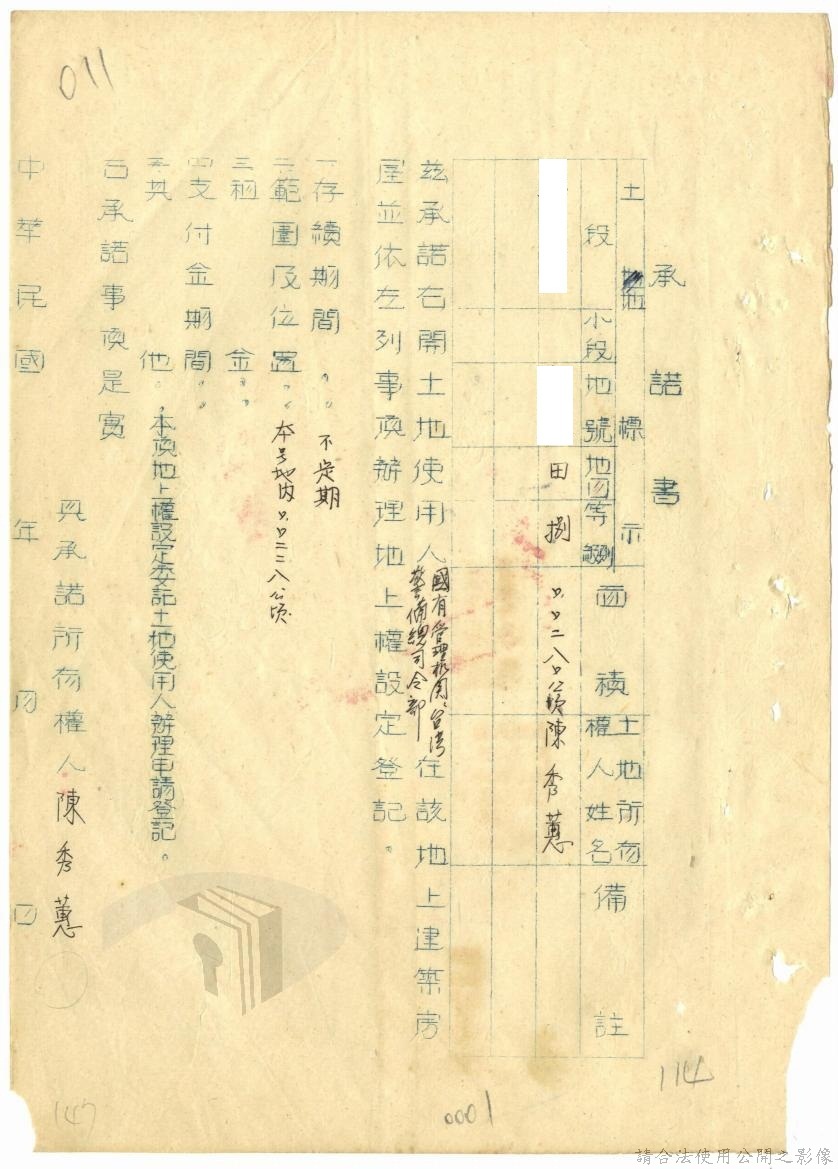 011
承諾書
土地標示
段
小段
地號
地目
等則
面積
土地所有權人姓名
備註
田
捌
0.0二八0公頃
陳秀蕙
茲承諾右開土地使用人國有管理機関:台湾警備總司令部在該地上建築房
屋並依左列事項辦理地上權設定登記。
一存續期間。不定期
二範圍及位置。本号地內0.0二二八公頃
三租金。
四支付金期間。
五其他。本項地上權設定委託土地使用人辦理申請登記。
右承諾事項是實
具承諾所有權人陳秀蕙
中華民國年月日
147
0001
114
請合法使用公開之影像